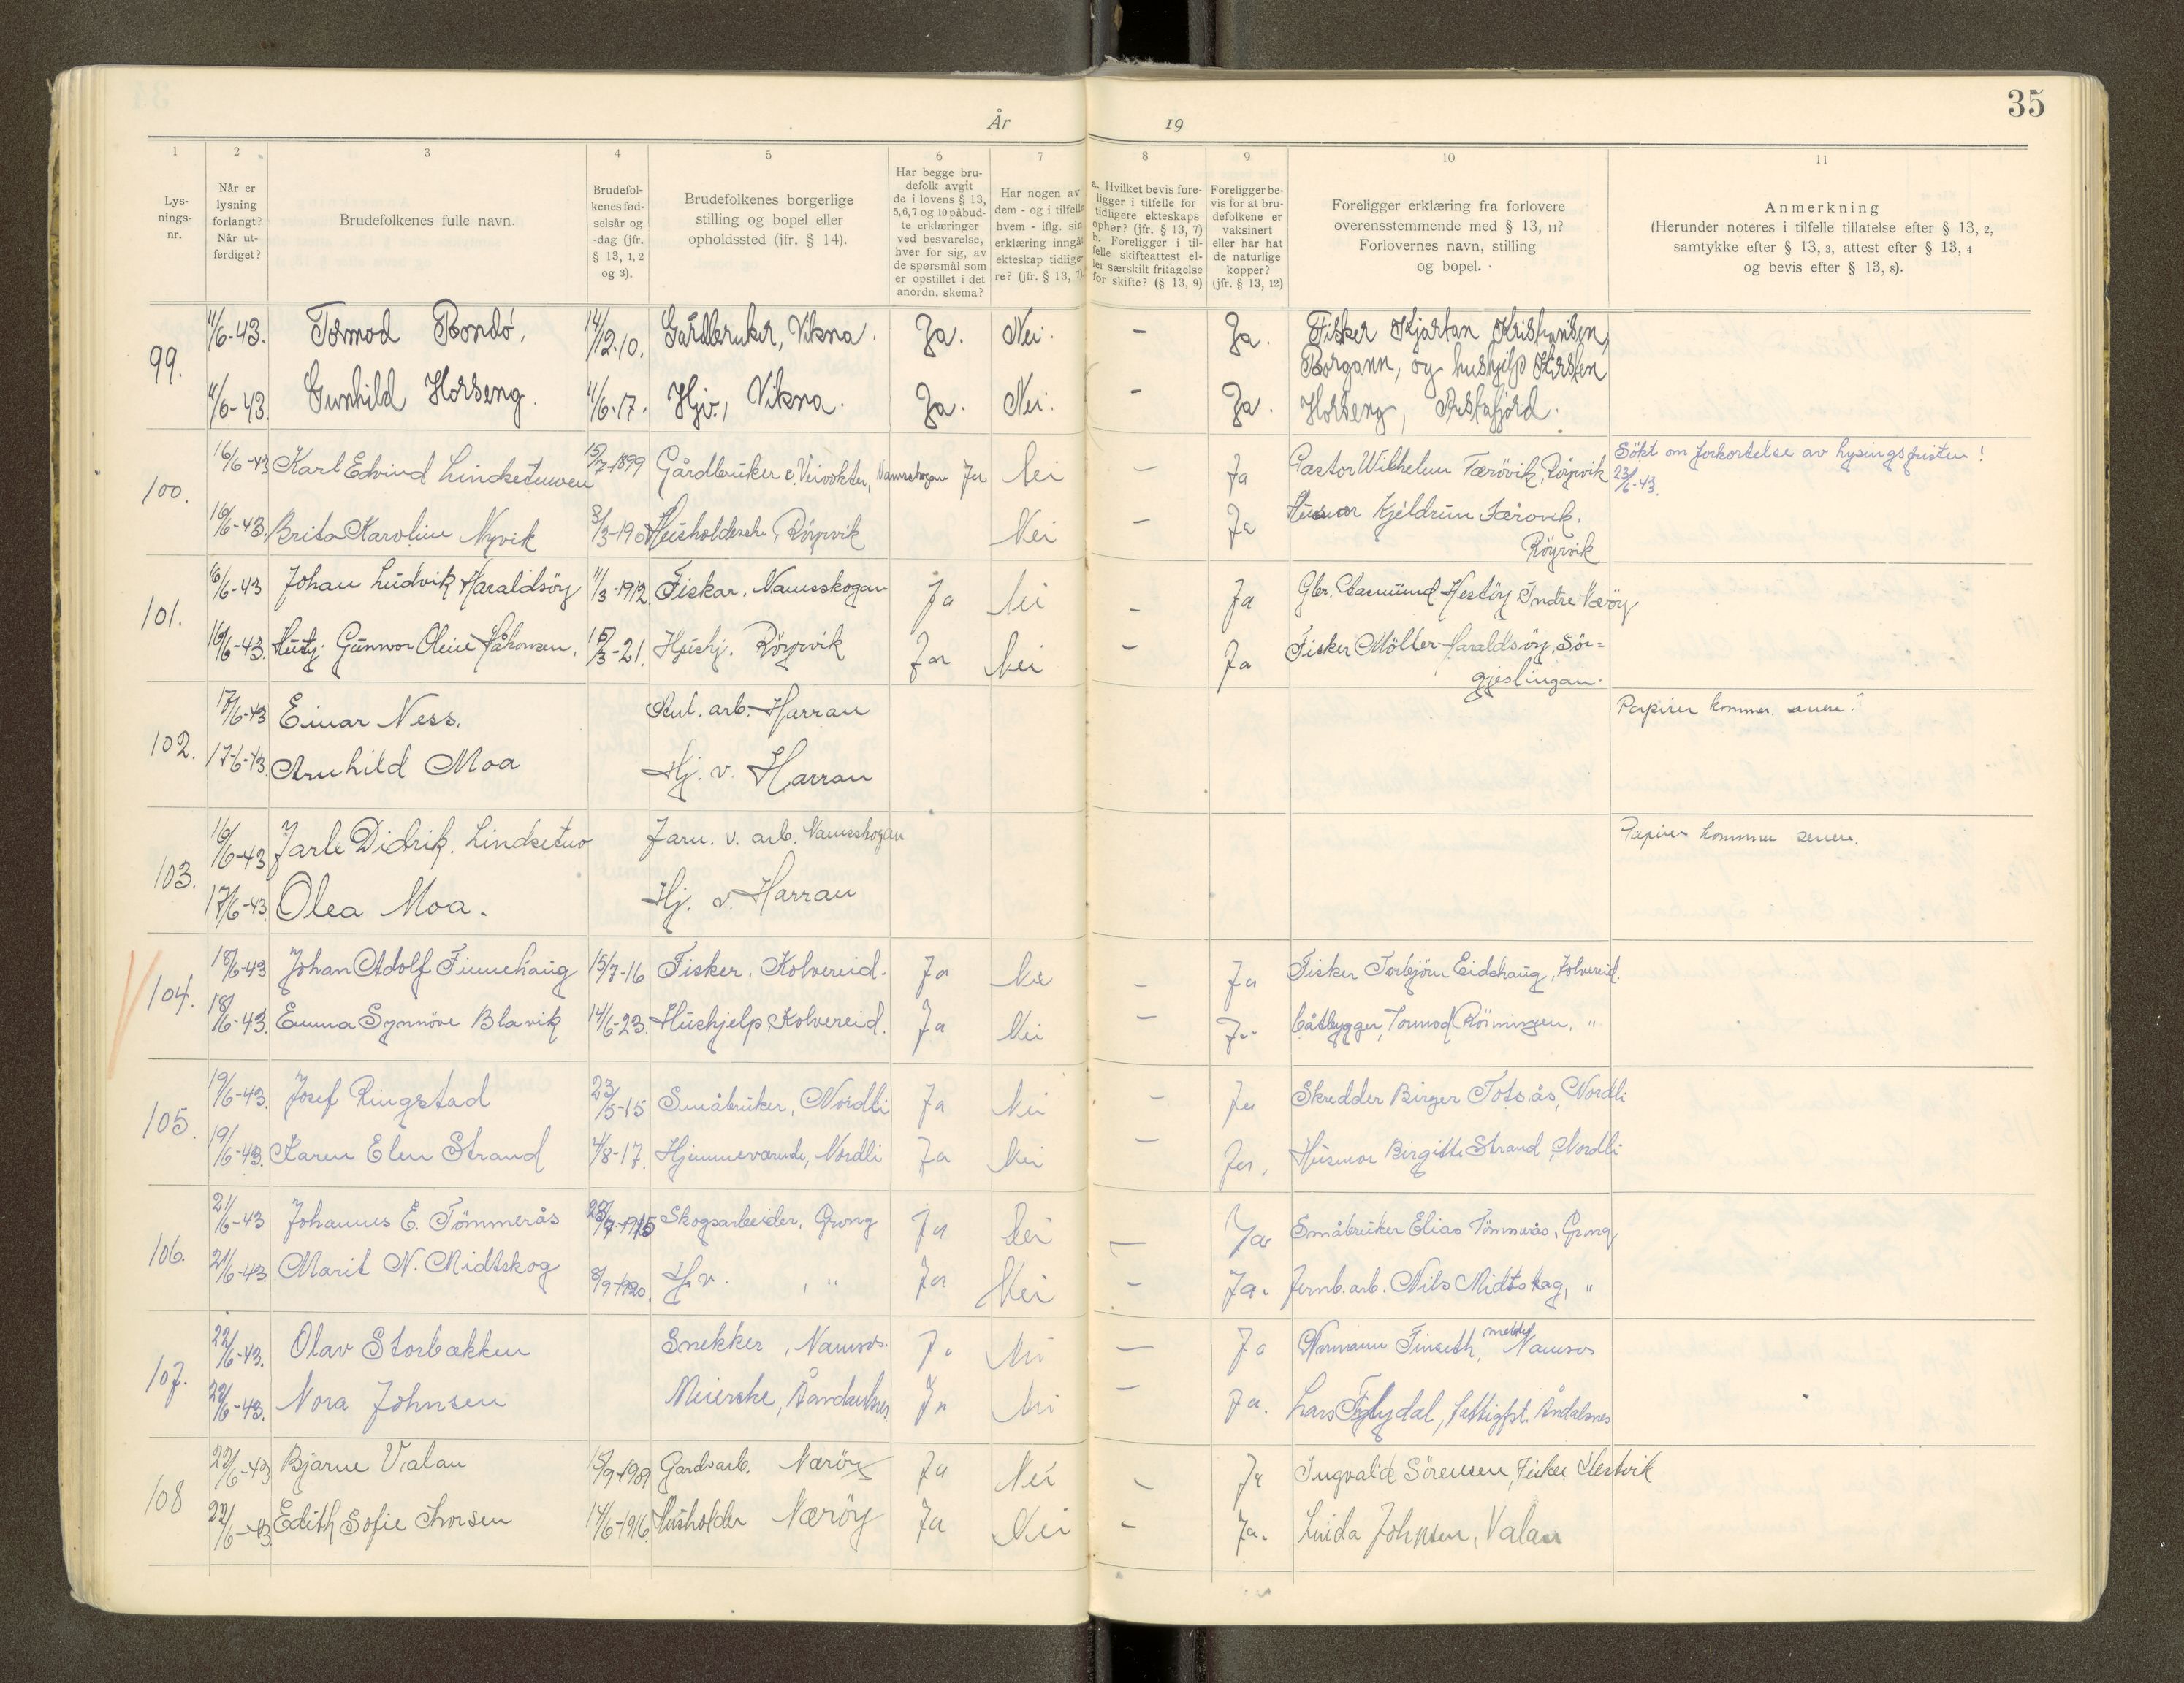 35
År 19
1 2 3 4 5 6 7 8 9 10 11
Lys-
nings-
nr.
Når er
lysning
forlangt?
Når ut-
ferdiget?
Brudefolkenes fulle navn.
Brudefol-
kenes fød-
selsår og
-dag (jfr.
§ 13, 1, 2
og 3).
Brudefolkenes borgerlige
stilling og bopel eller
opholdssted (jfr. § 14).
Har begge bru-
defolk avgit
de i lovens § 13,
5, 6, 7 og 10 påbud-
te erklæringer
ved besvarelse,
hver for sig, av
de spørsmål som
er opstillet i det
anordn. skema?
Har nogen av
dem - og i tilfelle
hvem - iflg. sin
erklæring inngåt
ekteskap tidlige-
re? (jfr. § 13, 7)
a. Hvilket bevis fore-
ligger i tilfelle for
tidligere ekteskaps
ophør? (jfr. § 13, 7)
b. Foreligger i til-
felle skifteattest el-
ler særskilt fritagelse
for skifte? (§ 13, 9)
Foreligger be-
vis for at bru-
defolkene er
vaksinert
eller har hat
de naturlige
kopper?
(jfr. § 13, 12)
Foreligger erklæring fra forlovere
overensstemmende med § 13, 11?
Forlovernes navn, stilling
og bopel.
Anmerkning
(Herunder noteres i tilfelle tillatelse efter § 13, 2,
samtykke efter § 13, 3, attest efter § 13, 4
og bevis efter § 13, 8).
99.
4/6-43. Tormod Bondø. 14/12.10. Gårdbruker, Vikna. Ja. Nei. - Ja. Fisker Kjartan Kristiansen,
Borgann, og hushjelp Kirsten
4/6-43. Gunhild Horseng. 4/6-17. Hjv., Vikna. Ja. Nei. - Ja. Horseng,
100.
16/6-43 Karl Edvind Lindsetmoen 15/7-1899 Gårdbruker o. Veivokter, Namsskogan Ja Nei - Ja Pastor Wilhelm Færövik, Röyrvik Sökt om forkortelse av lysingsfristen!
23/6-43.
16/6-43. Brita Karoline Nyvik Husholderske, Röyrvik Nei - Ja Husmor Kjeldrun Færovik.
Röyrvik
101.
16/6-43 Johan Ludvik Haraldsöy 11/3-1912. Fiskar. Namsskogan Ja Nei - Ja Gbr. Aasmund Hestöy Indre Næröy
16/6-43. Gunvor Oleie Håkonsen. 15/3-21. Hushj. Röyrvik Ja Nei - Ja Fisker Möller Haraldsöy, Sör=
gjeslingan.
102.
17/6-43 Einar Ness. Anl. arb. Harran Papirer kommer senere.
17-6-43. Arnhild Moa Hj. v. Harran
103.
16/6-43 Jarle Didrik Lindsetmo Jarn. v. arb. Namsskogan Papirer kommer senere.
17/6-43 Olea Moa. Hj. v. Harran
104.
18/6-43 Johan Adolf Finnehaug 15/7-16 Fisker. Kolvereid. Ja Nei - Ja Fisker Torbjörn Eidshaug, Kolvereid.
18/6-43. Emma Synnöve Blavik 14/6-23. Hushjelp, Kolvereid. Ja Nei - Ja Båtbygger, Tormod Rönningen, "
105.
19/6-43. Josef Ringstad 23/5-15 Småbruker, Nordli Ja Nei - Ja Skredder Birger Totsås, Nordli
19/6-43. Karen Elen Strand 4/8-17. Hjemmeværende, Nordli Ja Nei - Ja, Husmor Birgitte Strand, Nordli
106.
21/6-43 Johannes E. Tömmerås Skogsarbeider, Grong Ja Nei - Ja Småbruker Elias Tömmerås, Grong
21/6-43. Marit N. Midtskog 8/9-1920. Hj v. , " Ja Nei - Ja. Jernb. arb. Nils Midtskog, "
107.
22/6-43. Olav Storbækken Snekker, Namsos. Ja Nei - Ja Normann Finseth, Namsos
22/6-43. Nora Johnsen Meierske, Åndalsnes. Ja Nei - Ja. Lars Flydal, fattigfst. Åndalsnes
108
22/6-43 Bjarne Valan 15/9-1909 Gardsarb. Næröy Ja Nei - Ja Ingvald Sörensen, Fisker Hestvik
22/6-43. Edith Sofie Thorsen 14/6-1916. Husholder Næröy Ja Nei - Ja. Linda Johnsen, Valan